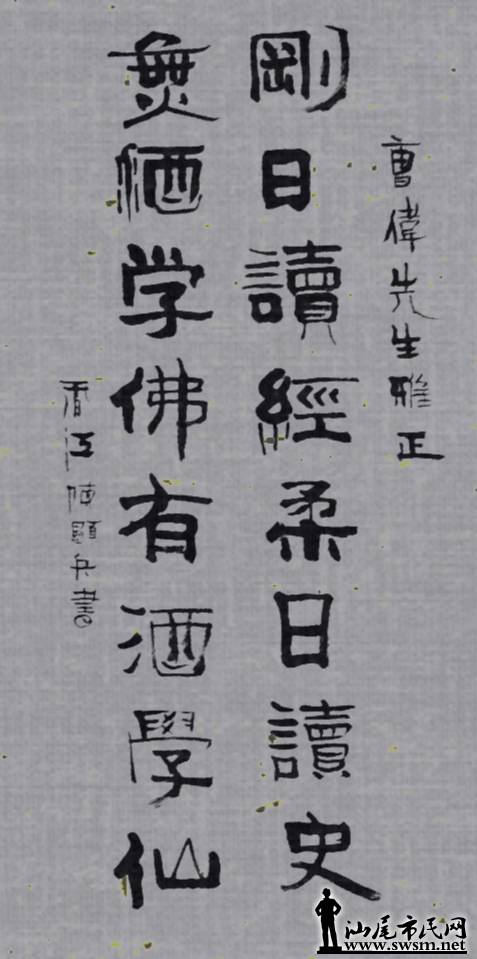 曹偉先生雅正
剛日讀經柔日讀史
無酒学佛有酒學仙
香江陳顕兵書
汕尾市民网
www.swsm.net